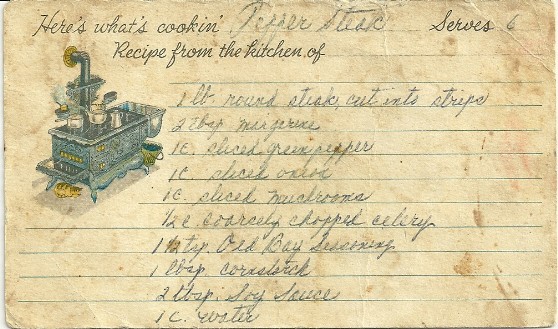 Here's what's cookin' Pepper Steak Serves 6
Recipe from the kitchen of
1 lb. round steak, cut into strips
2 tbsp margerine
1 c. sliced green pepper
1 c. sliced onion
1 c. sliced mushrooms
1/2 c. coarsely chopped celery
1 1/2 tsp. Old Bay Seasoning
1 tbsp. cornstarch
2 tbsp. Soy Sauce
1 c. water